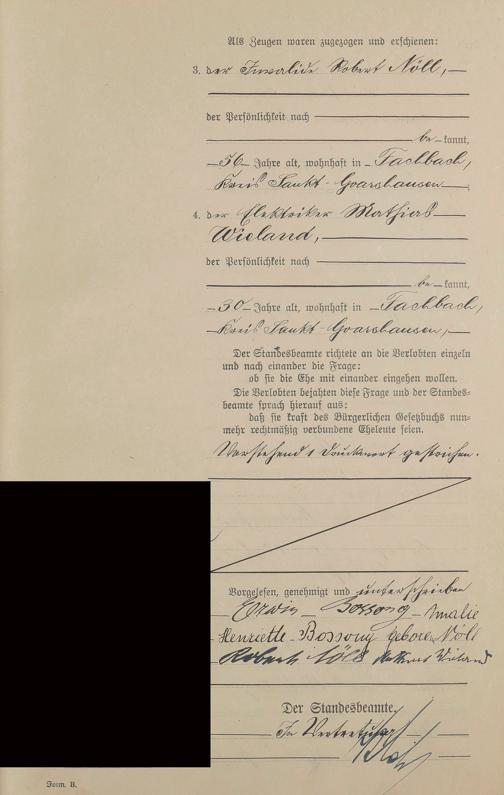 Als Zeugen waren zugezogen und erschienen:
3. der Invalide Robert Nöll,
der Persönlichkeit nach
be kannt,
56 Jahre alt, wohnhaft in Fachbach,
Kreis Sankt-Goarshausen
4. der Elektriker Mathias
Wieland,
der Persönlichkeit nach
be kannt,
30 Jahre alt, wohnhaft in Fachbach,
Kreis Sankt-Goarshausen,
Der Standesbeamte richtete an die Verlobten einzeln
und nach einander die Frage:
ob sie die Ehe mit einander eingehen wollen.
Die Verlobten bejahten diese Frage und der Standes-
beamte sprach hierauf aus:
daß sie kraft des Bürgerlichen Gesetzbuchs nun-
mehr rechtmäßig verbundene Eheleute seien.
Vorstehend 1 Druckwort gestrichen.
Vorgelesen, genehmigt und unterschrieben
Erwin Bossong Amalie
Henriette Bossong geborene Nöll
Robert Nöll Mathias Wieland
Der Standesbeamte.
In Vertretung
Form. B.